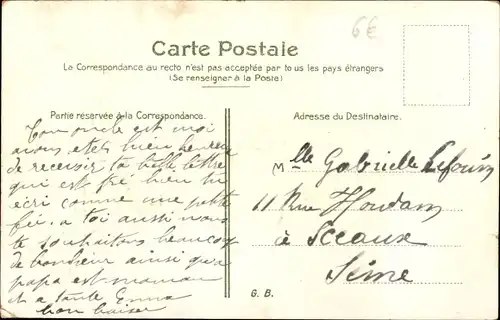 6€
Carte Postale
La Correspondance au recto n'est pas acceptée par tous les pays étrangers
(Se renseigner à la Poste)
Partie réservée à la Correspondance.
Adresse du Destinataire.
Ton oncle et moi
avons etés bien heureux
de recevoir ta belle lettre
qui est bien tu
ecri comme une petite
fée. a toi aussi nous
te souhaitons beaucoup
de bonheur ainsi qu'a
papa et maman
et a tante Emma
bon baiser
Mlle Gabrielle
11 Rue Houdan
à Sceaux
Seine
G. B.